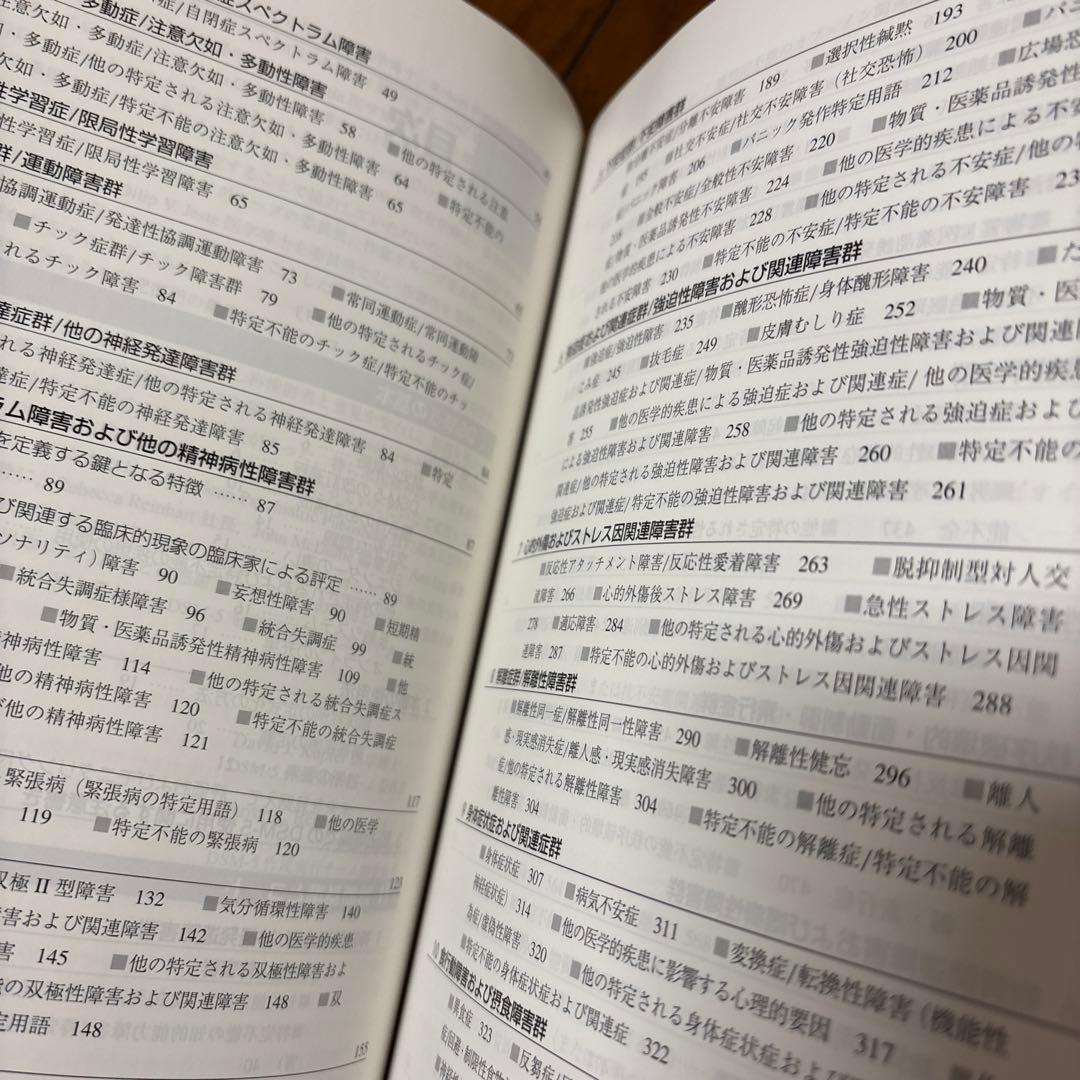 症スペクトラム障害
症/自閉症スペクトラム障害 49
多動症/注意欠如・多動性障害
注意欠如・多動症/注意欠如・多動性障害 58 ■他の特定される注意
欠如・多動症/他の特定される注意欠如・多動性障害 64 ■特定不能の
如・多動症/特定不能の注意欠如・多動性障害 65
性学習症/限局性学習障害
性学習症/限局性学習障害 65
群/運動障害群
協調運動症/発達性協調運動障害 73 ■常同運動症/常同運動障
■チック症群/チック障害群 79 ■他の特定されるチック症/
れるチック障害 84 ■特定不能のチック症/特定不能のチッ
達症群/他の神経発達障害群
れる神経発達症/他の特定される神経発達障害 84 ■特定
達症/特定不能の神経発達障害 85
ラム障害および他の精神病性障害群 87
を定義する鍵となる特徴 …… 87
…… 89
び関連する臨床的現象の臨床家による評定 …… 89
ソナリティ)障害 90 ■妄想性障害 90 ■短期精
■統合失調症様障害 96 ■統合失調症 99 ■統
■物質・医薬品誘発性精神病性障害 109 ■他
精神病性障害 114 ■他の特定される統合失調症ス
の他の精神病性障害 120 ■特定不能の統合失調症
び他の精神病性障害 121
117
緊張病(緊張病の特定用語) 118 ■他の医学
119 ■特定不能の緊張病 120
123
双極 II 型障害 132 ■気分循環性障害 140
害および関連障害 142 ■他の医学的疾患
害 145 ■他の特定される双極性障害およ
の双極性障害および関連障害 148 ■双
定用語 148
155
不安障害群
分離不安障害 189 ■選択性緘黙 193
195 ■社交不安症/社交不安障害(社交恐怖) 200 ■パニ
パニック障害 206 ■パニック発作特定用語 212 ■広場恐
■全般不安症/全般性不安障害 220 ■物質・医薬品誘発性
物質・医薬品誘発性不安障害 224 ■他の医学的疾患による不安
他の医学的疾患による不安障害 228 ■他の特定される不安症/他の特
される不安障害 230 ■特定不能の不安症/特定不能の不安障害
6 強迫症および関連症群/強迫性障害および関連障害群
■強迫症/強迫性障害 235 ■醜形恐怖症/身体醜形障害 240 ■た
こみ症 245 ■抜毛症 249 ■皮膚むしり症 252 ■物質・医
薬品誘発性強迫症および関連症/物質・医薬品誘発性強迫性障害および関連障
害 255 ■他の医学的疾患による強迫症および関連症/他の医学的疾患
による強迫性障害および関連障害 258 ■他の特定される強迫症および
関連症/他の特定される強迫性障害および関連障害 260 ■特定不能の
強迫症および関連症/特定不能の強迫性障害および関連障害 261
7 心的外傷およびストレス因関連障害群
■反応性アタッチメント障害/反応性愛着障害 263 ■脱抑制型対人交
流障害 266 ■心的外傷後ストレス障害 269 ■急性ストレス障害
278 ■適応障害 284 ■他の特定される心的外傷およびストレス因関
連障害 287 ■特定不能の心的外傷およびストレス因関連障害 288
8 解離症群/解離性障害群
■解離性同一症/解離性同一性障害 290 ■解離性健忘 296 ■離人
感・現実感消失症/離人感・現実感消失障害 300 ■他の特定される解離
症/他の特定される解離性障害 304 ■特定不能の解離症/特定不能の解
離性障害 304
9 身体症状症および関連症群
■身体症状症 307 ■病気不安症 311 ■変換症/転換性障害(機能性
神経症状症) 314 ■他の医学的疾患に影響する心理的要因 317
為症/虚偽性障害 320 ■他の特定される身体症状症および
■特定不能の身体症状症および関連症 322
10 食行動障害および摂食障害群
■異食症 323 ■反芻症
症/回避・制限性食物